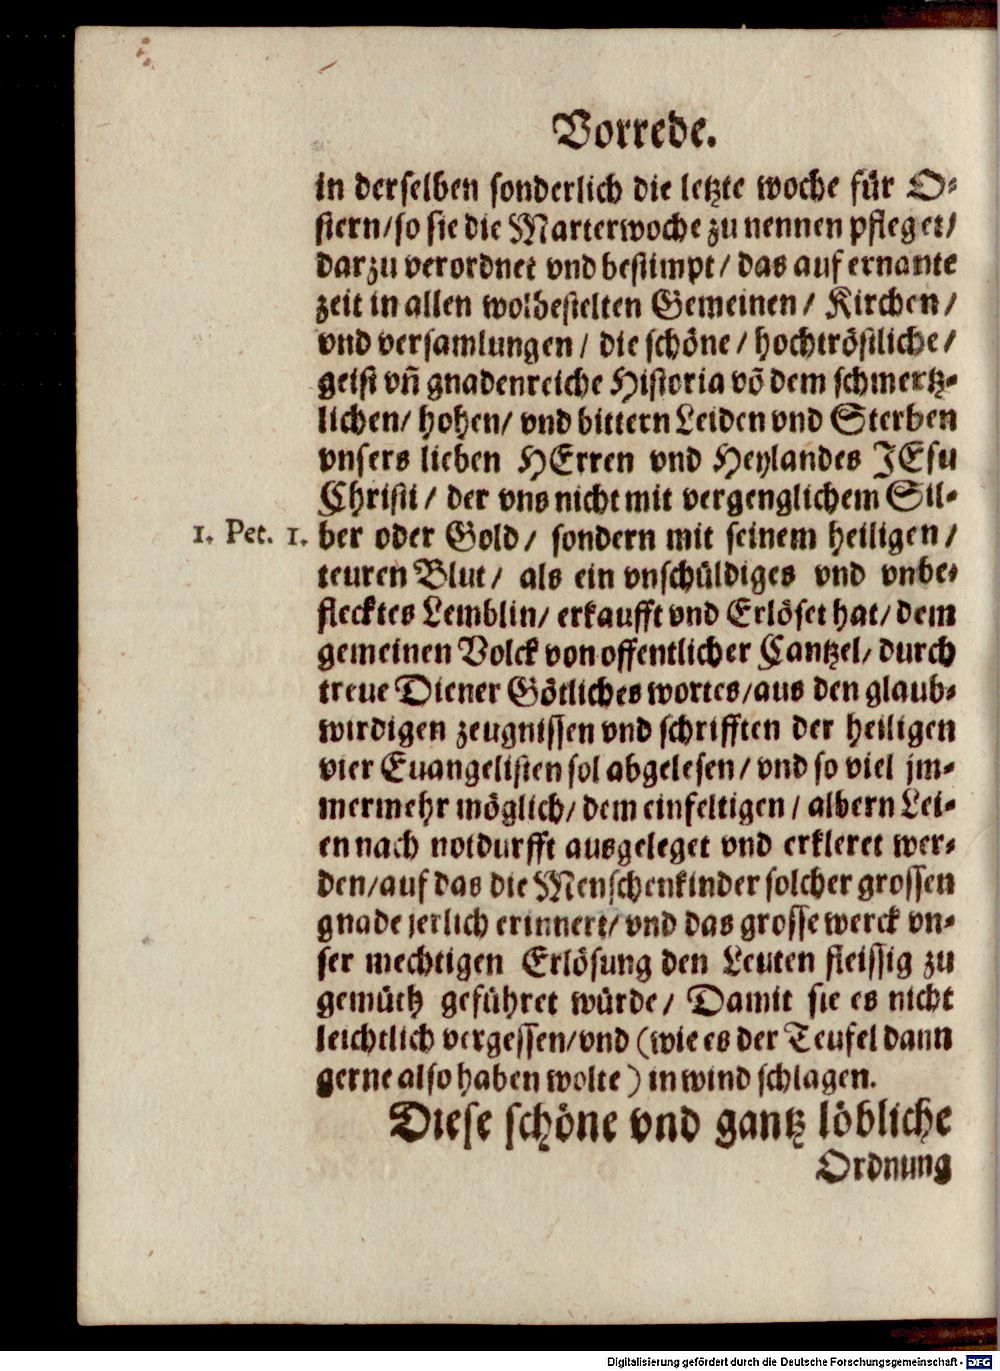 Vorrede.
in derselben sonderlich die letzte woche für O-
stern/so sie die Marterwoche zu nennen pfleget/
darzu verordnet vnd bestimpt/ das auf ernante
zeit in allen wolbestelten Gemeinen/ Kirchen/
vnd versamlungen/ die schöne/ hochtröstliche/
geist vñ gnadenreiche Historia võ dem schmertz-
lichen/ hohen/ vnd bittern Leiden vnd Sterben
vnsers lieben HErren vnd Heylandes JEsu
Christi/ der vns nicht mit vergenglichem Sil-
1. Pet. 1. ber oder Gold/ sondern mit seinem heiligen/
teuren Blut/ als ein vnschüldiges vnd vnbe-
flecktes Lemblin/ erkaufft vnd Erlöset hat/ dem
gemeinen Volck von offentlicher Cantzel/ durch
treue Diener Götliches wortes/aus den glaub-
wirdigen zeugnissen vnd schrifften der heiligen
vier Euangelisten sol abgelesen/ vnd so viel jm-
mermehr möglich/ dem einfeltigen/ albern Lei-
en nach notdurfft ausgeleget vnd erkleret wer-
den/auf das die Menschenkinder solcher grossen
gnade jerlich erinnert/ vnd das grosse werck vn-
ser mechtigen Erlösung den Leuten fleissig zu
gemüth geführet würde/ Damit sie es nicht
leichtlich vergessen/vnd (wie es der Teufel dann
gerne also haben wolte) in wind schlagen.
Diese schöne vnd gantz löbliche
Ordnung
Digitalisierung gefördert durch die Deutsche Forschungsgemeinschaft - DFG